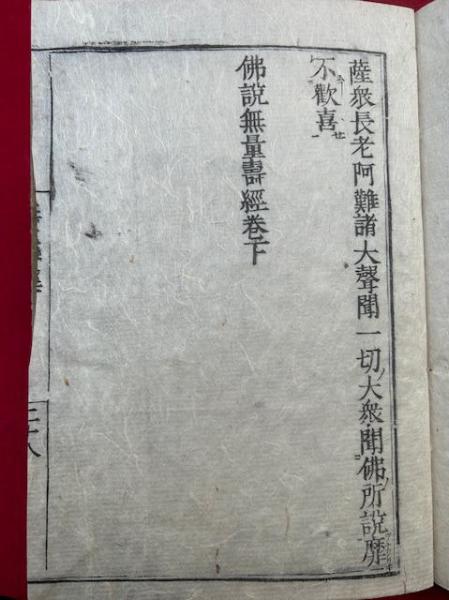 薩衆長老阿難諸大聲聞一切大衆聞佛所說靡
不歡喜
佛說無量壽經卷下